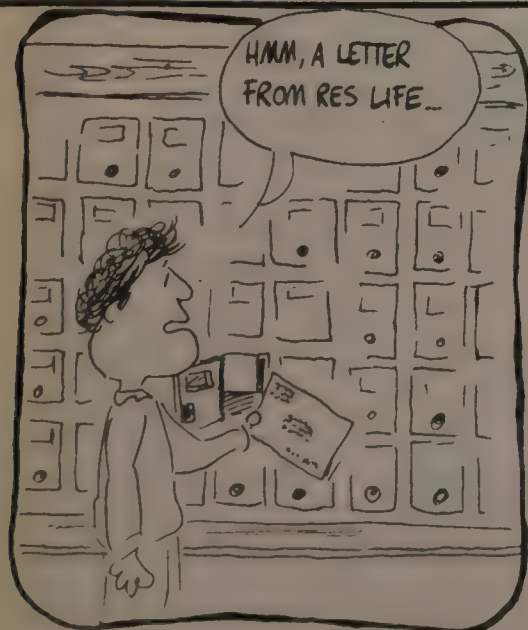 HMM, A LETTER
FROM RES LIFE...